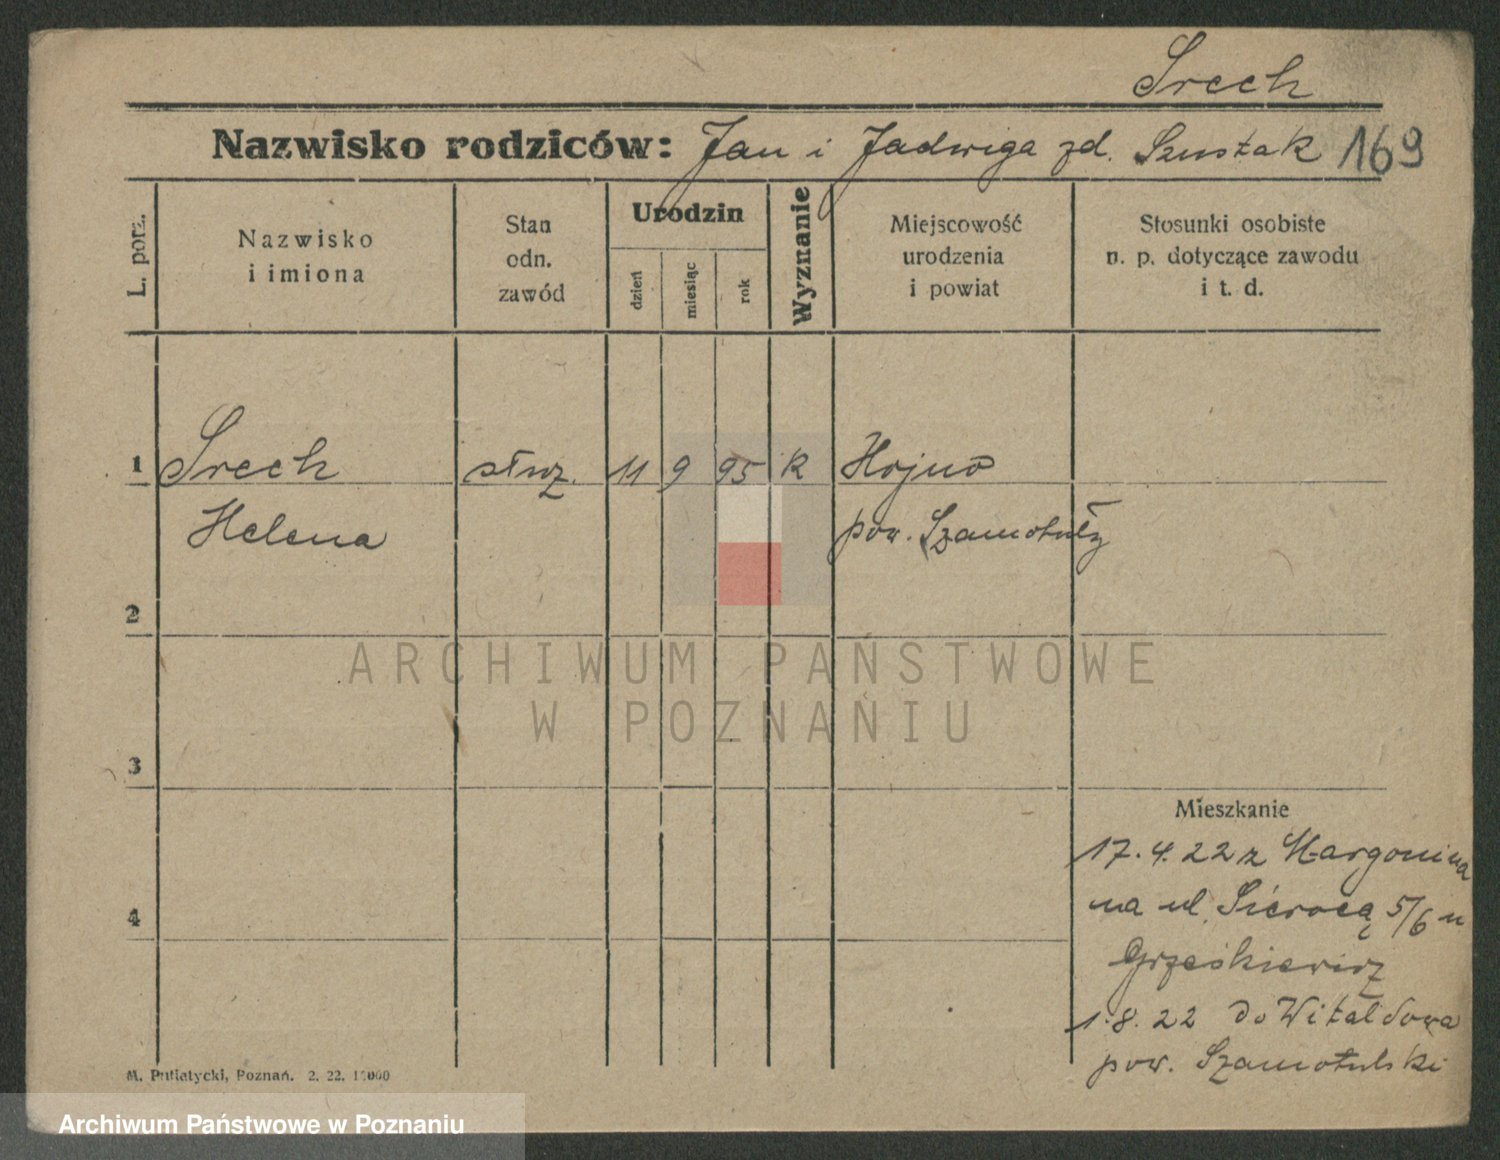 Srech
Nazwisko rodziców: Jan i Jadwiga zd. Szustak 169
L. porz.
Nazwisko
i imiona
Stan
odn.
zawód
Urodzin
dzień
miesiąc
rok
Wyznanie
Miejscowość
urodzenia
i powiat
Stosunki osobiste
n. p. dotyczące zawodu
i t. d.
1 Srech służ. 11 9 95 k Hojno
Helena pow. Szamotuły
2
ARCHIWUM PAŃSTWOWE
W POZNANIU
3
Mieszkanie
17.4.22 z Margonina
na ul. Sierocą 5/6 u
4
Grześkiewicz
1.8.22 do Witaldowa
pow. Szamotulski
M. Putiatycki, Poznań. 2. 22. 10000
Archiwum Państwowe w Poznaniu